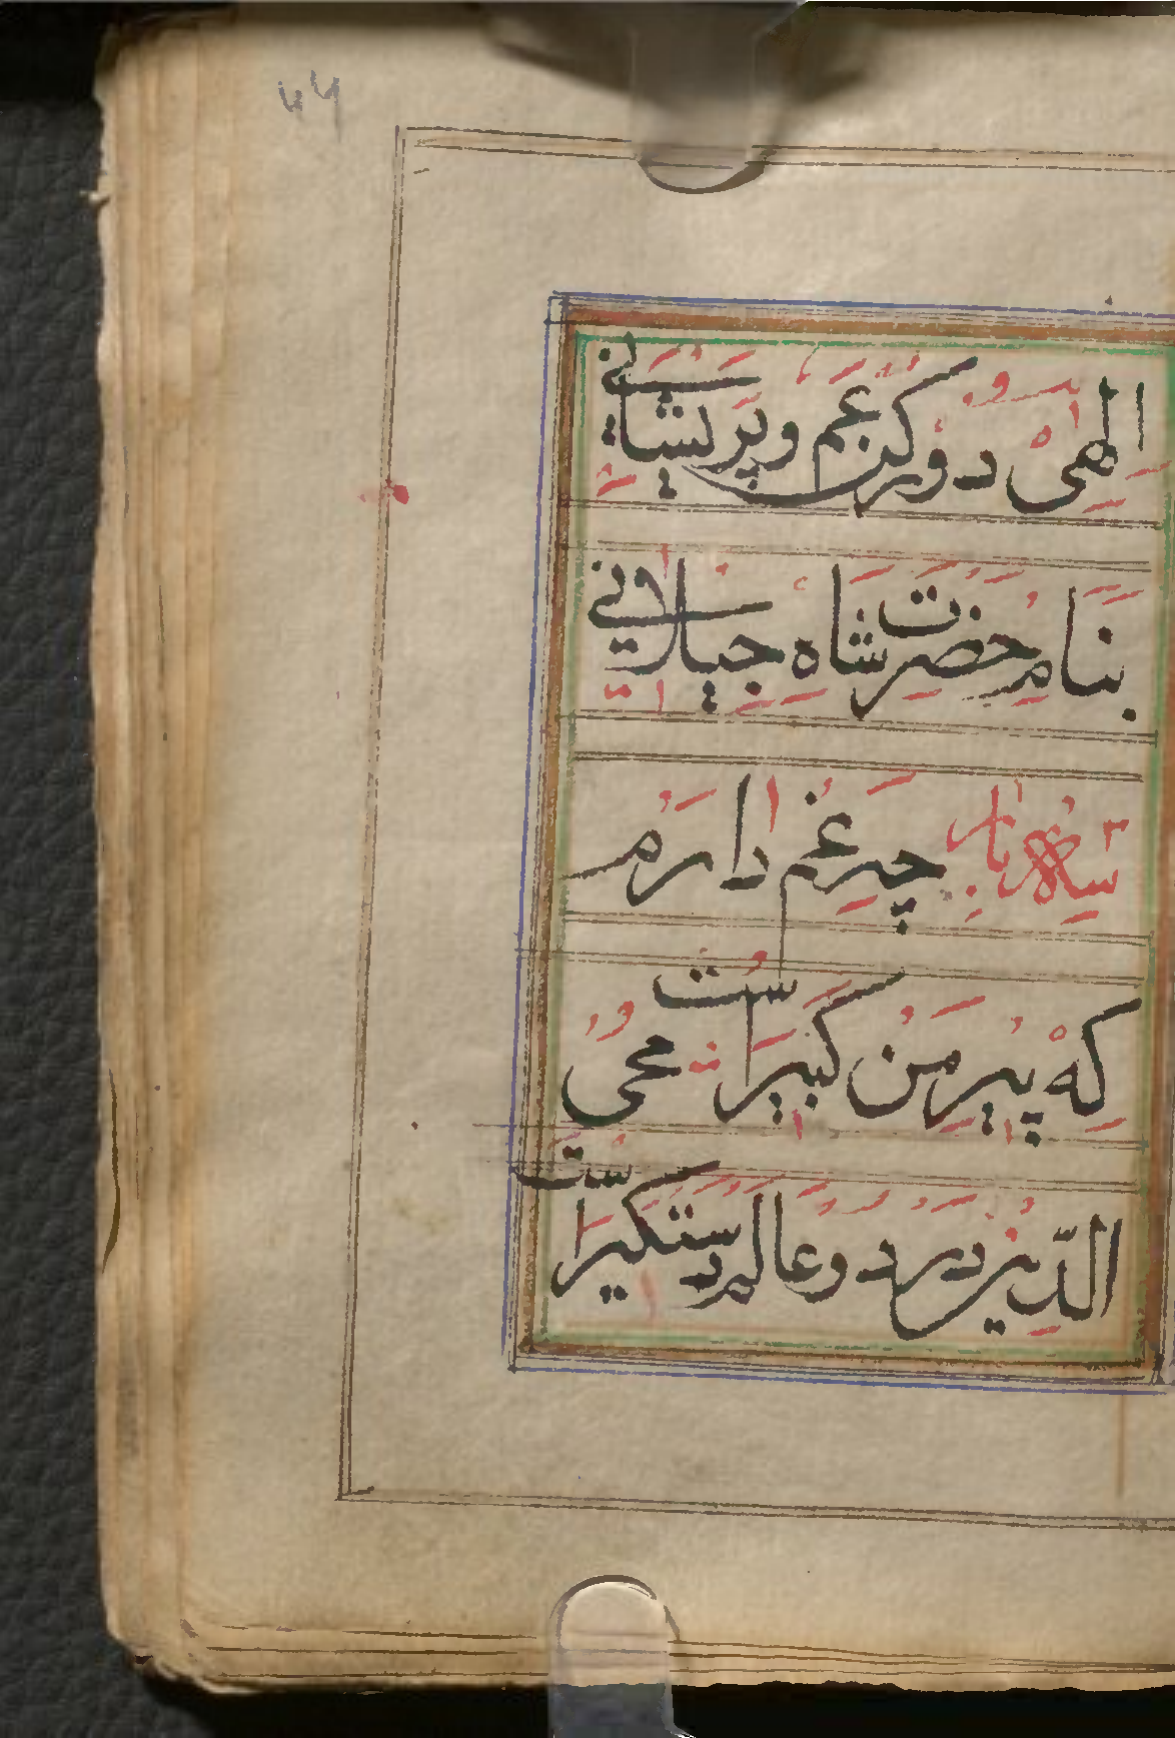 ۴۶
اِلٰهِیْ دُوْر کُنْ غَم وپَرِیشَانِی
بَنَامِ حَضْرَتِ شَاہِ جِیْلَانِی
۳ سِہ بار چِه غَمْ دَارَمْ
کِهْ پِیرِ مَنْ کَبِیرَاسْت مُحی
الدِّیْن دَرْدُوعَالَمْ دَسْتْگِیرَاسْت